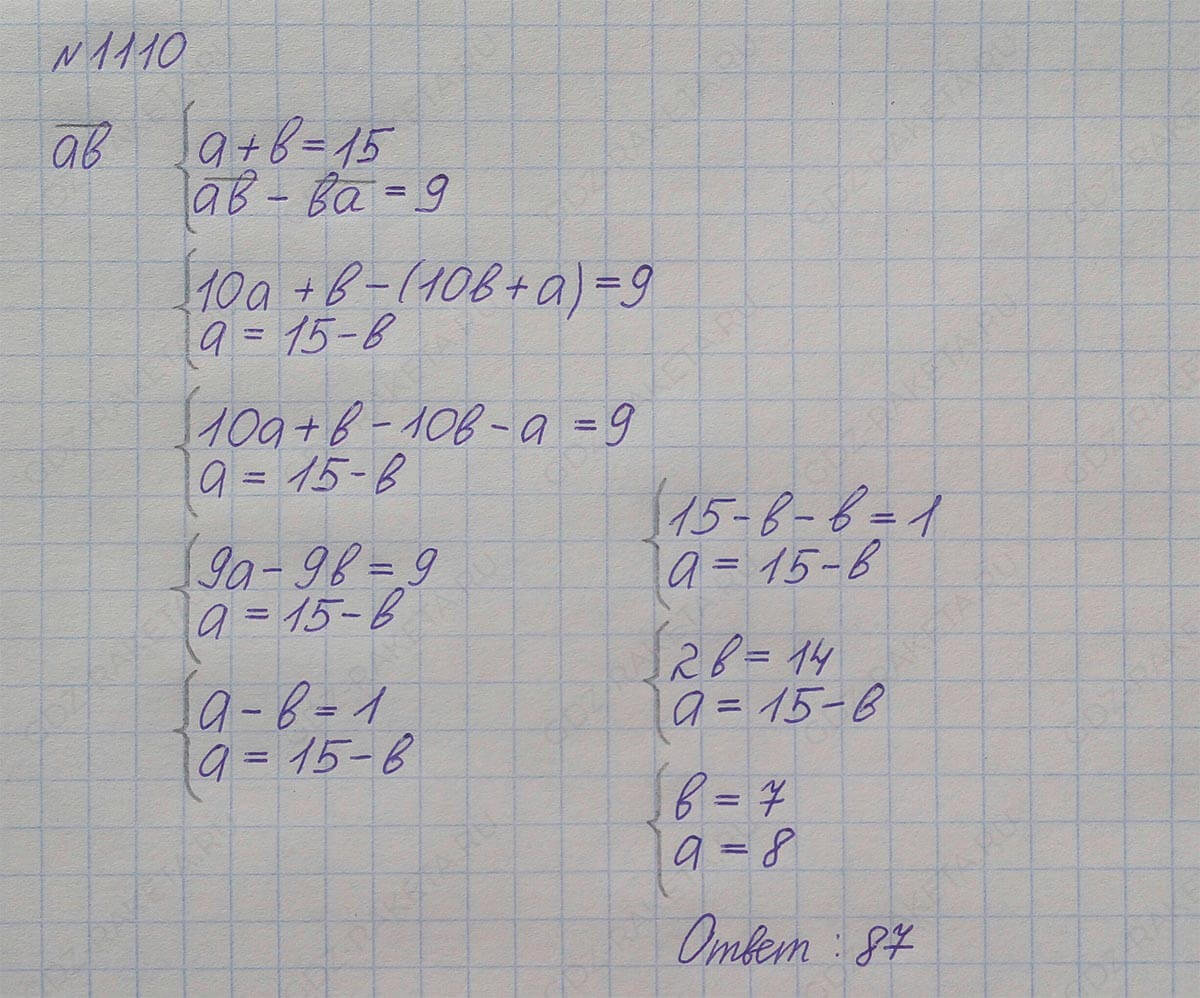 №1110
ab
a + b = 15
ab - ba = 9
10a + b - (10b + a) = 9
a = 15 - b
10a + b - 10b - a = 9
a = 15 - b
9a - 9b = 9
a = 15 - b
a - b = 1
a = 15 - b
15 - b - b = 1
a = 15 - b
2b = 14
a = 15 - b
b = 7
a = 8
Ответ: 87
GDZ-RAKETA.RU